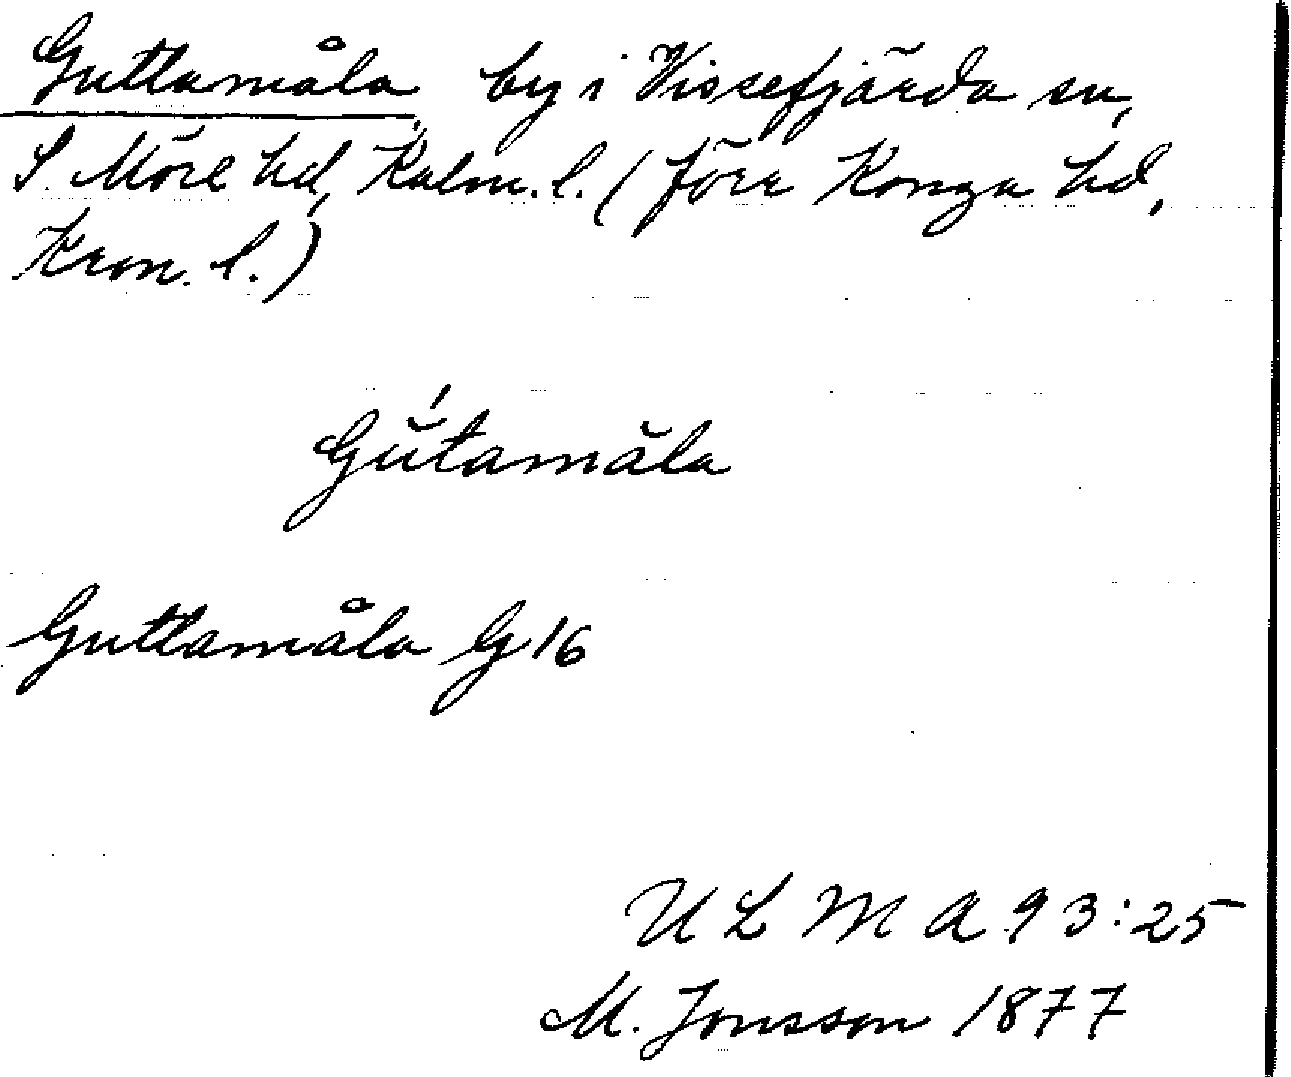 Guttamåla, by i Vissefjärda sn,
S. Möre hd, Kalm. l. (förr Konga hd,
Kron. l.)
Gŭ́tamăla
Guttamåla G 16
U L M A 93:25
M. Jonsson 1877